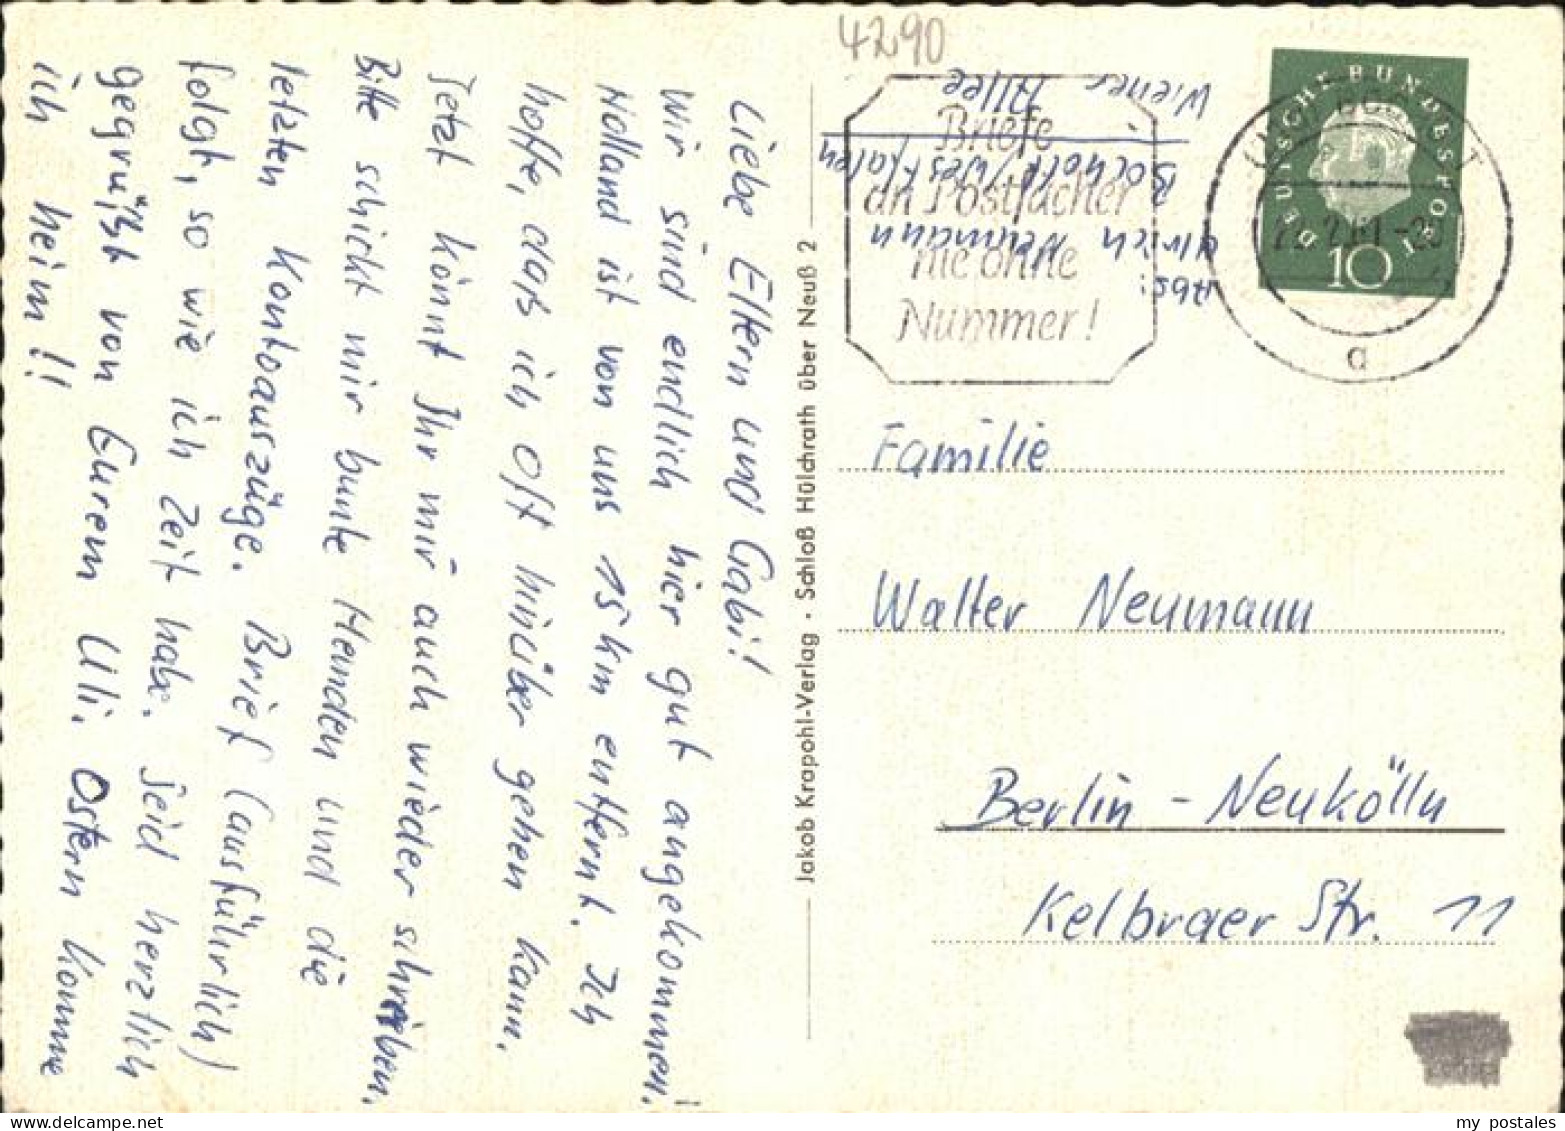 Liebe Eltern und Gabi!
Wir sind endlich hier gut angekommen!
Holland ist von uns 15 km entfernt. Ich
hoffe, das ich oft hinüber gehen kann.
Jetzt könnt Ihr mir auch wieder schreiben.
Bitte schickt mir bunte Hemden und die
letzten Kontoauszüge. Brief (ausführlich)
folgt, so wie ich Zeit habe. Seid herzlich
gegrüßt von Eurem Uli. Ostern komme
ich heim!!
Jakob Krapohl-Verlag · Schloß Hülchrath über Neuß 2
4290
Abs:
Ulrich Neumann
Bocholt/Westfalen
Wiener Allee
Briefe
an Postfächer
nie ohne
Nummer!
DEUTSCHE BUNDESPOST
10
a
Familie
Walter Neumann
Berlin - Neukölln
Kelbraer Str. 11
my postales